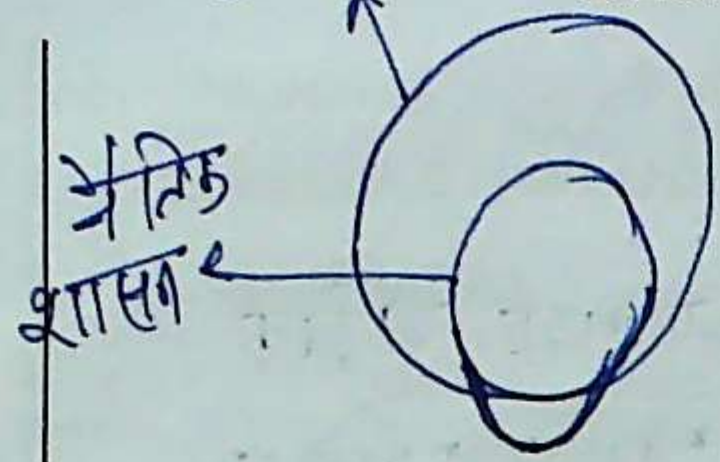 नैतिक
शासन